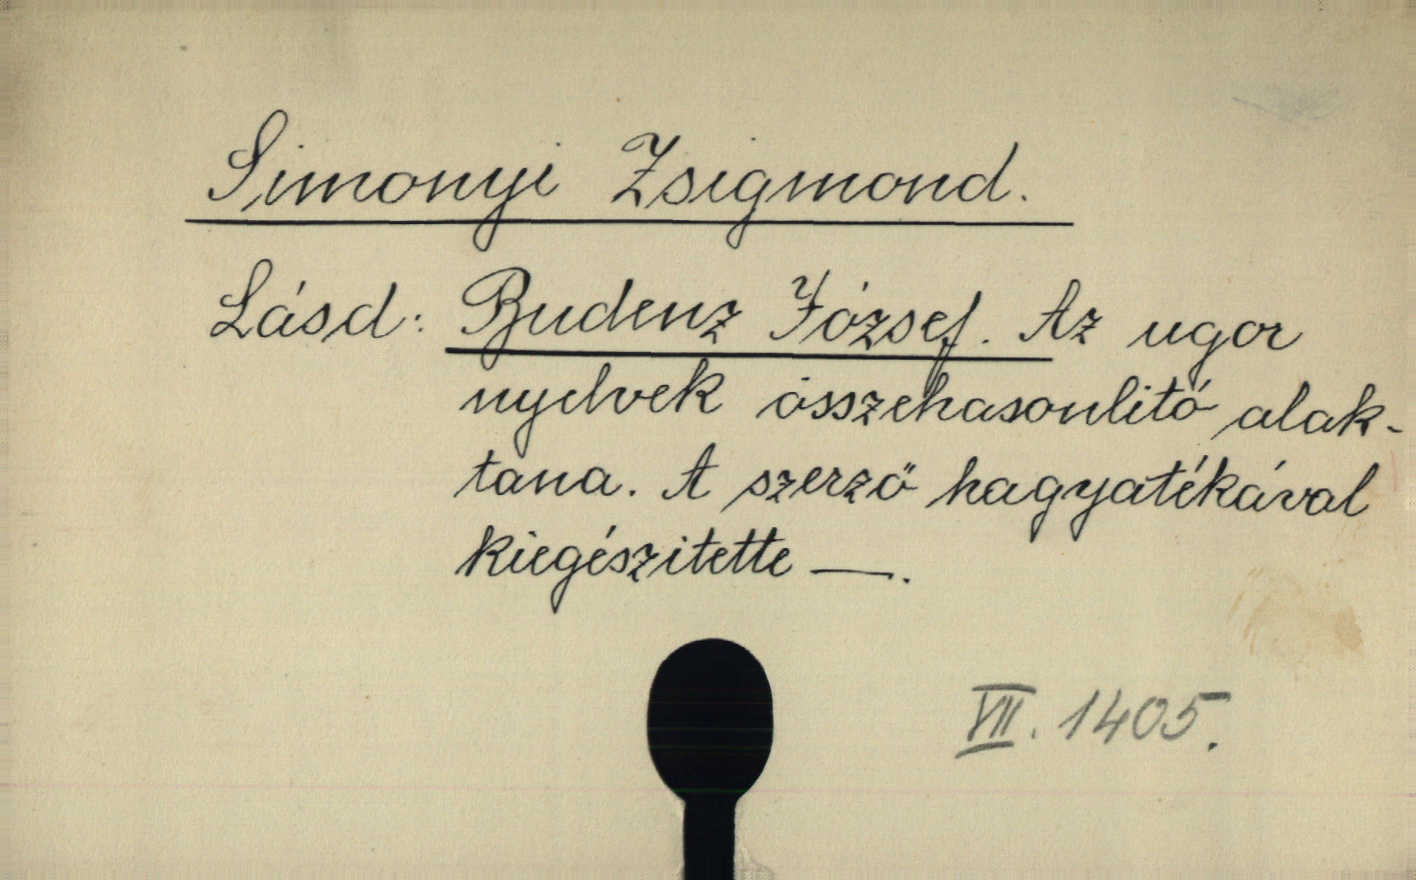 Simonyi Zsigmond.
Lásd: Budenz József. Az ugor
nyelvek összehasonlitó alak-
tana. A szerző hagyatékával
kiegészitette —.
VII. 1405.